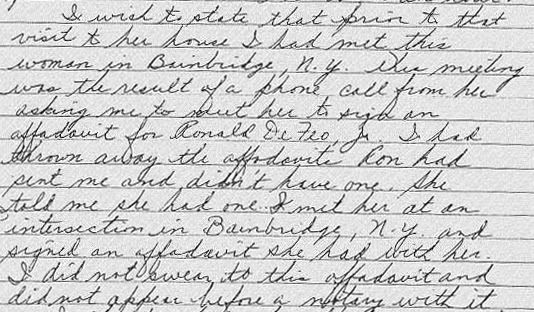 I wish to state that prior to that
visit to her house I had met this
woman in Bainbridge, N.Y. This meeting
was the result of a phone call from her
asking me to meet her to sign an
affadavit for Ronald DeFeo, Jr I had
thrown away the affadavits Ron had
sent me and didn't have one. She
told me she had one. I met her at an
intersection in Bainbridge, N.Y. and
signed an affadavit she had with her.
I did not swear to this affadavit and
did not appear before a notary with it